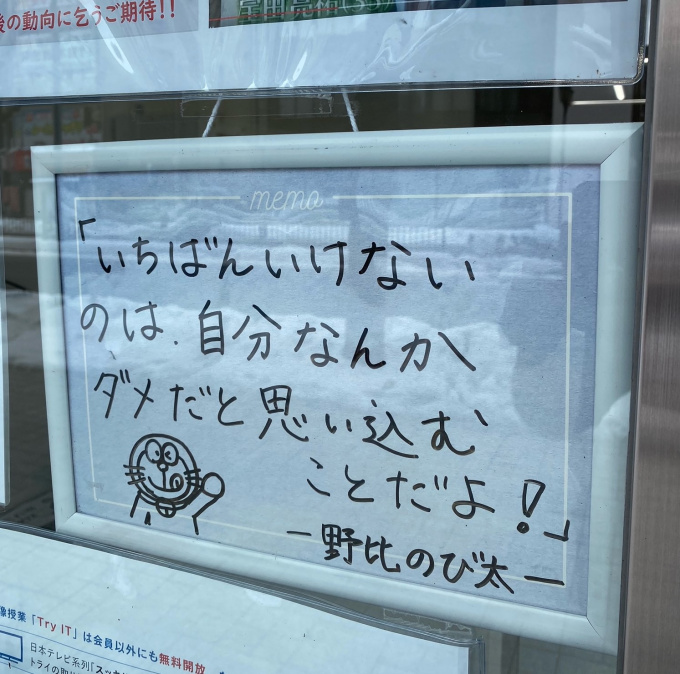 後の動向に乞うご期待!!
memo
「いちばんいけない
のは、自分なんか
ダメだと思い込む
ことだよ!」
ー野比のび太ー
像授業「Try IT」は会員以外にも無料開放
日本テレビ系列「スッキ
トライの取